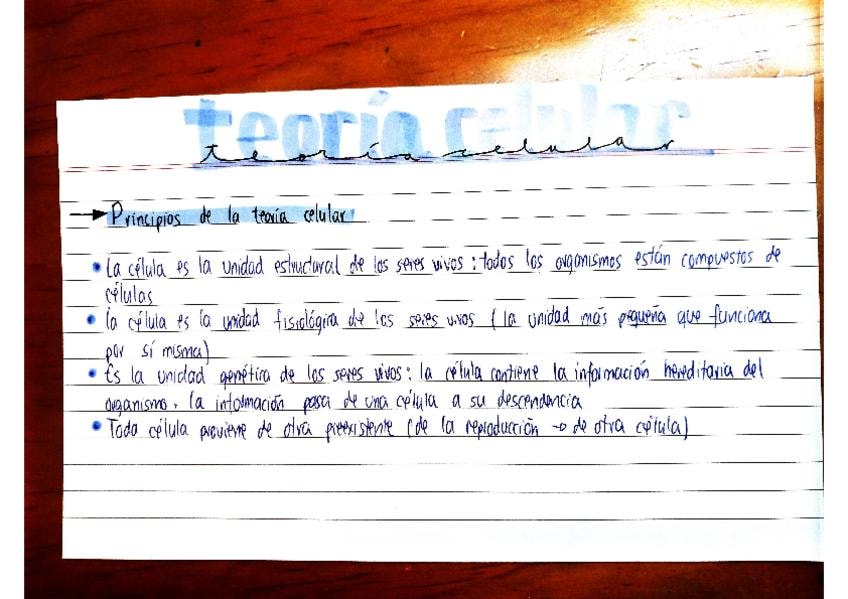 teoría celular
teoría celular
→ Principios de la teoría celular
• La célula es la unidad estructural de los seres vivos: todos los organismos están compuestos de
células
• la célula es la unidad fisiológica de los seres vivos (la unidad más pequeña que funciona
por sí misma)
• Es la unidad genética de los seres vivos: la célula contiene la información hereditaria del
organismo. la información pasa de una célula a su descendencia
• Toda célula proviene de otra preexistente (de la reproducción → de otra célula)